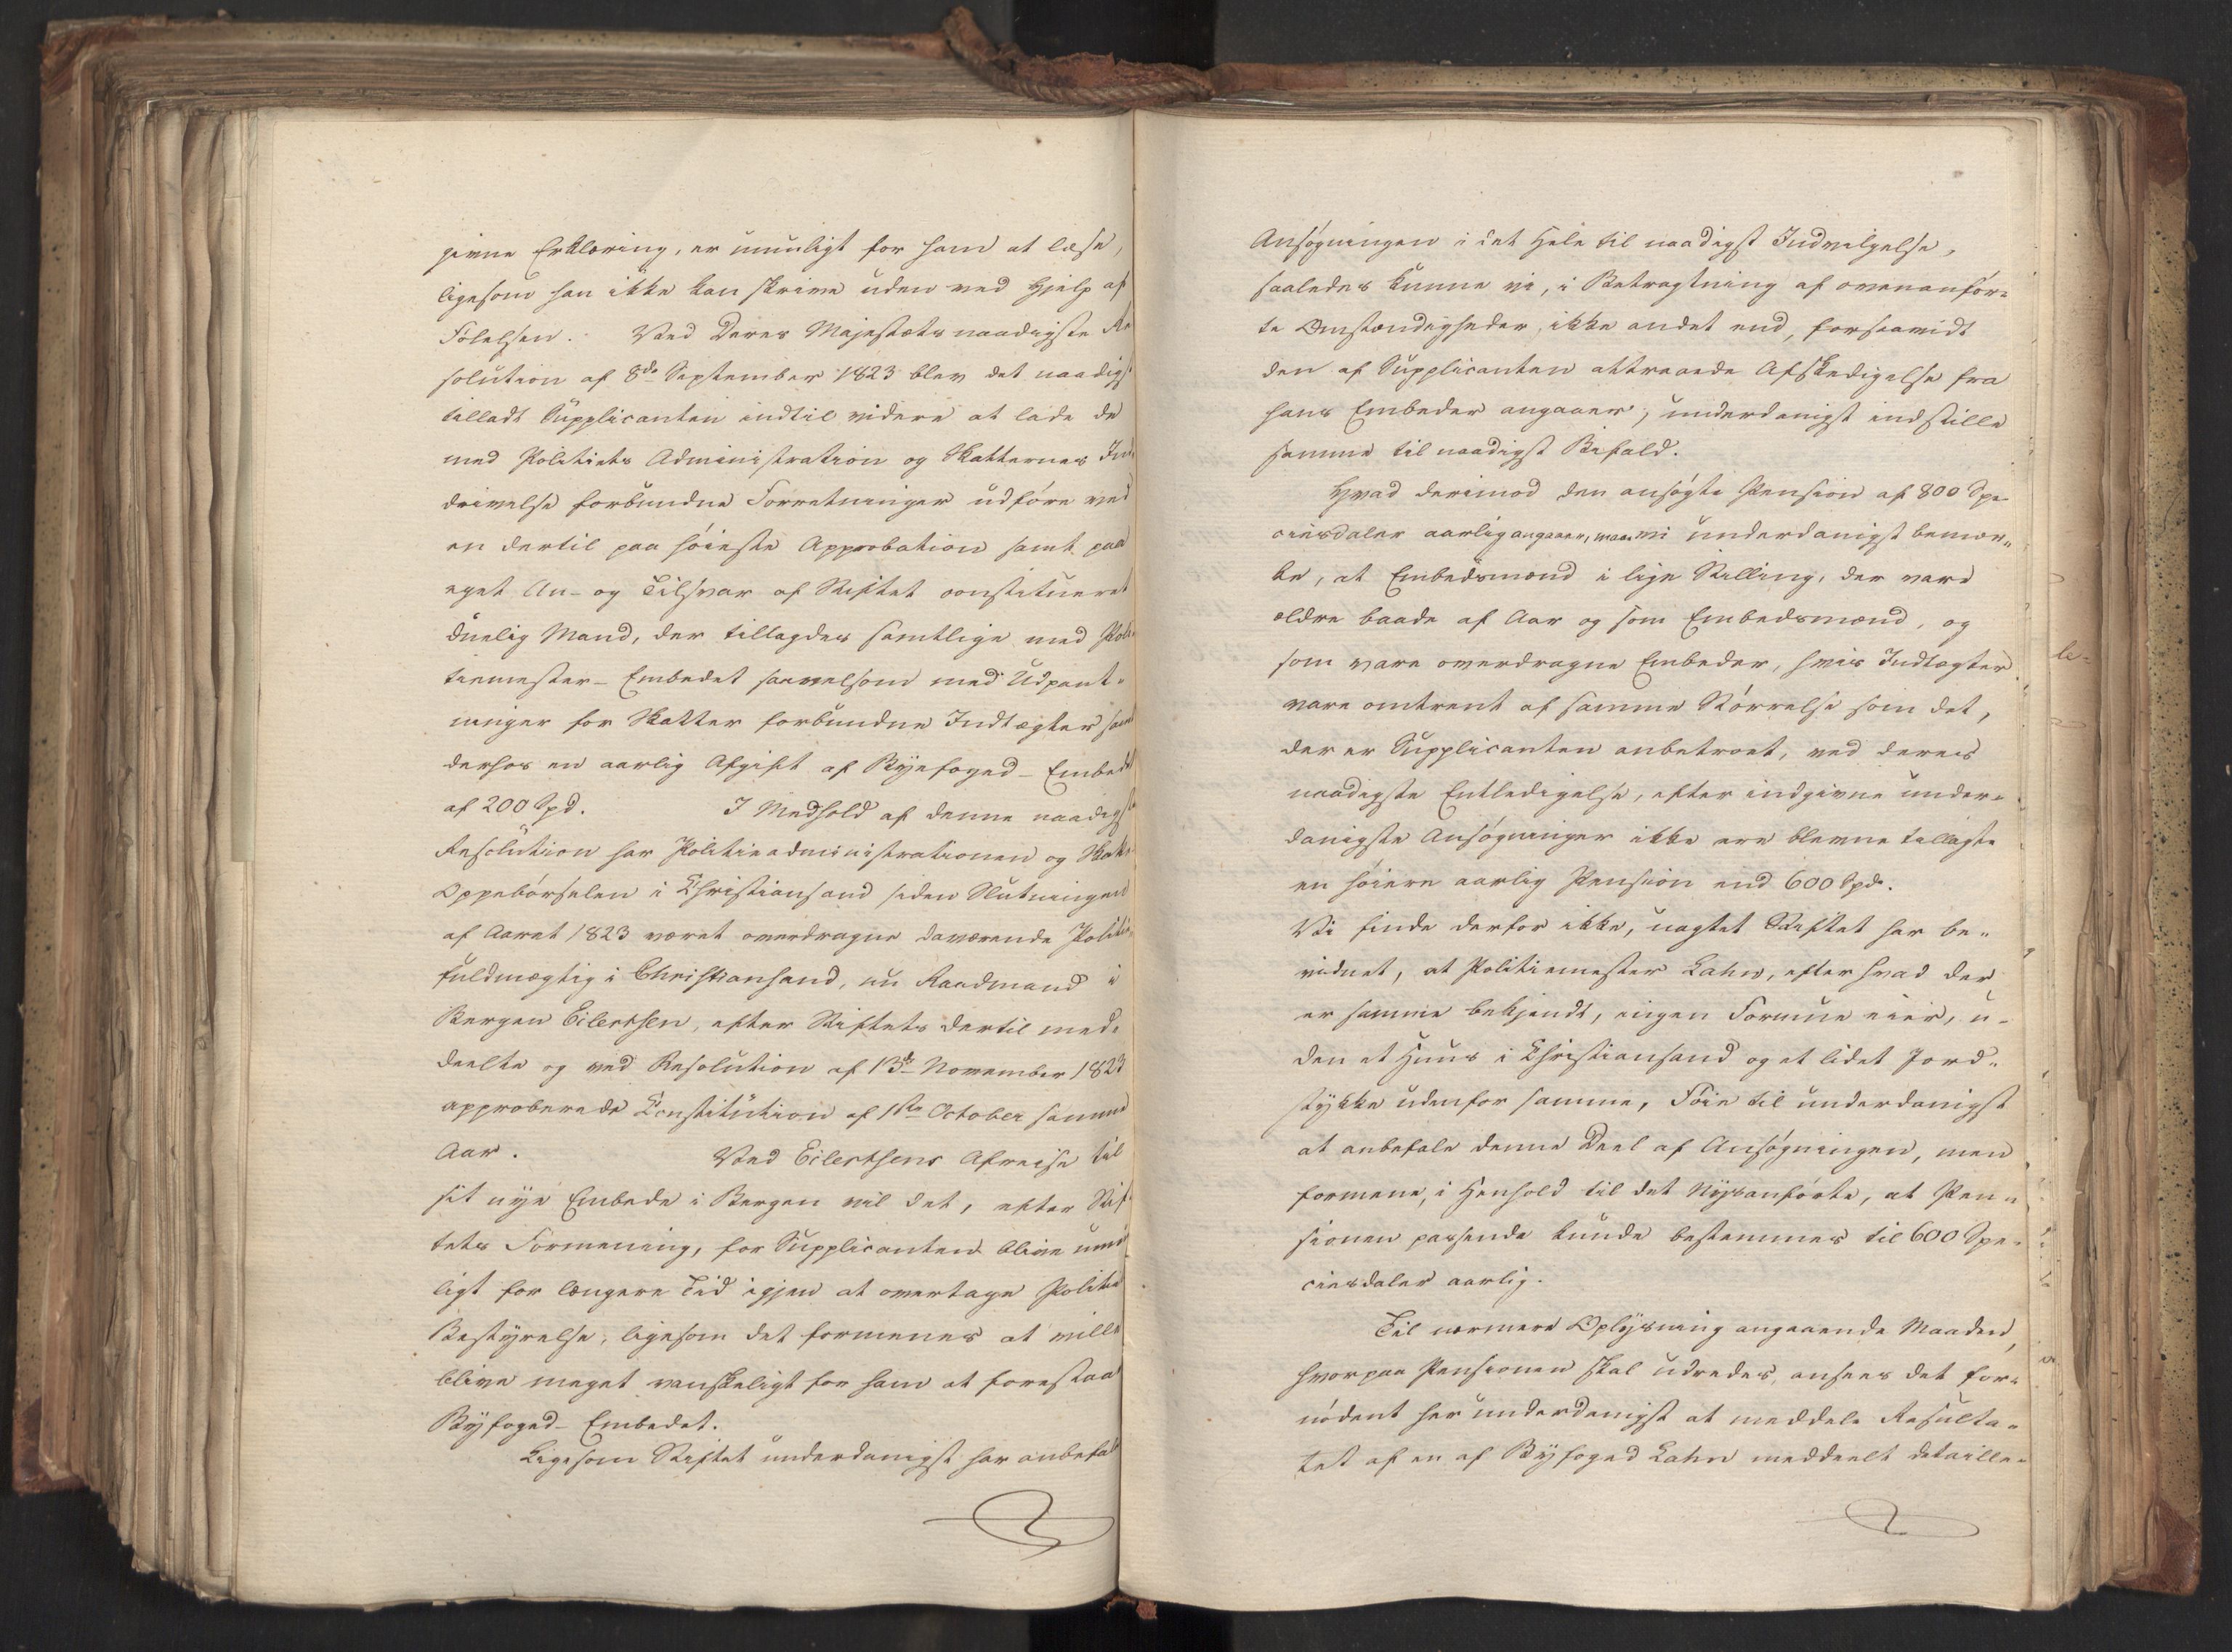 givne Erklæring, er umuligt for ham at læse,
ligesom han ikke kan skrive uden ved Hjelp af
Følelsen. Ved Deres Majestæts naadigste Re
solution af 8de September 1823 blev det naadigst
tilladt Supplicanten indtil videre at lade de
med Politiets Administration og Skatternes Ind
drivelse forbundne Forretninger udføre ved
en dertil paa høieste Approbation samt paa
eget An- og Tilsvar af Stiftet constitueret
duelig Mand, der tillagdes samtlige med Poli
tiemester-Embedet saavelsom med Udpant-
ninger for Skatter forbundne Indtægter samt
derhos en aarlig Afgift af Byefoged-Embedet
af 200 Spd. I Medhold af denne naadigste
Resolution har Politieadministrationen og Skatte
Oppebørselen i Christiansand siden Slutningen
af Aaret 1823 været overdragne daværende Politie
fuldmægtig i Christiansand, nu Raadmand i
Bergen Eilertsen, efter Stiftets dertil med-
deelte og ved Resolution af 13de November 1823
approberede Constitution af 1ste October samme
Aar. Ved Eilertsens Afreise til
sit nye Embede i Bergen vil det, efter Stif
tets Formening, for Supplicanten blive umu
ligt for længere Tid igjen at overtage Politie
Bestyrelse, ligesom det formenes at ville
blive meget vanskeligt for ham at forestaae
Byfoged-Embedet.
Ligesom Stiftet underdanigst har anbefalt
Ansøgningen i det Hele til naadigst Indvilgelse,
saaledes kunne vi, i Betragtning af ovenanfør-
te Omstændigheder, ikke andet end, forsaavidt
den af Supplicanten attraaede Afskedigelse fra
hans Embeder angaaer, underdanigst indstille
samme til naadigst Bifald.
Hvad derimod den ansøgte Pension af 800 Spe-
ciesdaler aarlig angaaer, maae vi underdanigst bemær-
ke, at Embedsmænd i lige Stilling, der vare
ældre baade af Aar og som Embedsmænd, og
som vare overdragne Embeder, hvis Indtægter
vare omtrent af samme Størrelse som det,
der er Supplicanten anbetroet, ved deres
naadigste Entledigelse, efter indgivne under-
danigste Ansøgninger ikke ere blevne tillagte
en høiere aarlig Pension end 600 Spd.
Vi finde derfor ikke, uagtet Stiftet har be-
vidnet, at Politiemester Lahn, efter hvad der
er samme bekjendt, ingen Formue eier, u-
den et Huus i Christiansand og et lidet Jord-
stykke udenfor samme, Føie til underdanigst
at anbefale denne Deel af Ansøgningen, men
formene, i Henhold til det Nysanførte, at Pen-
sionen passende kunde bestemmes til 600 Spe-
ciesdaler aarlig.
Til nærmere Oplysning angaaende Maaden,
hvorpaa Pensionen skal udredes, ansees det for-
nødent her underdanigst at meddele Resulta-
tet af en af Byfoged Lahn meddeelt detaille-